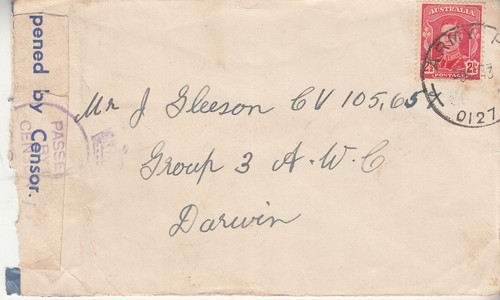 pened by Censor.
PASSE
BY
CEN
AUSTRALIA
2½
2½
POSTAGE
ARMY P
0127
Mr J Gleeson CV 105,65
Group 3 A.W.C
Darwin